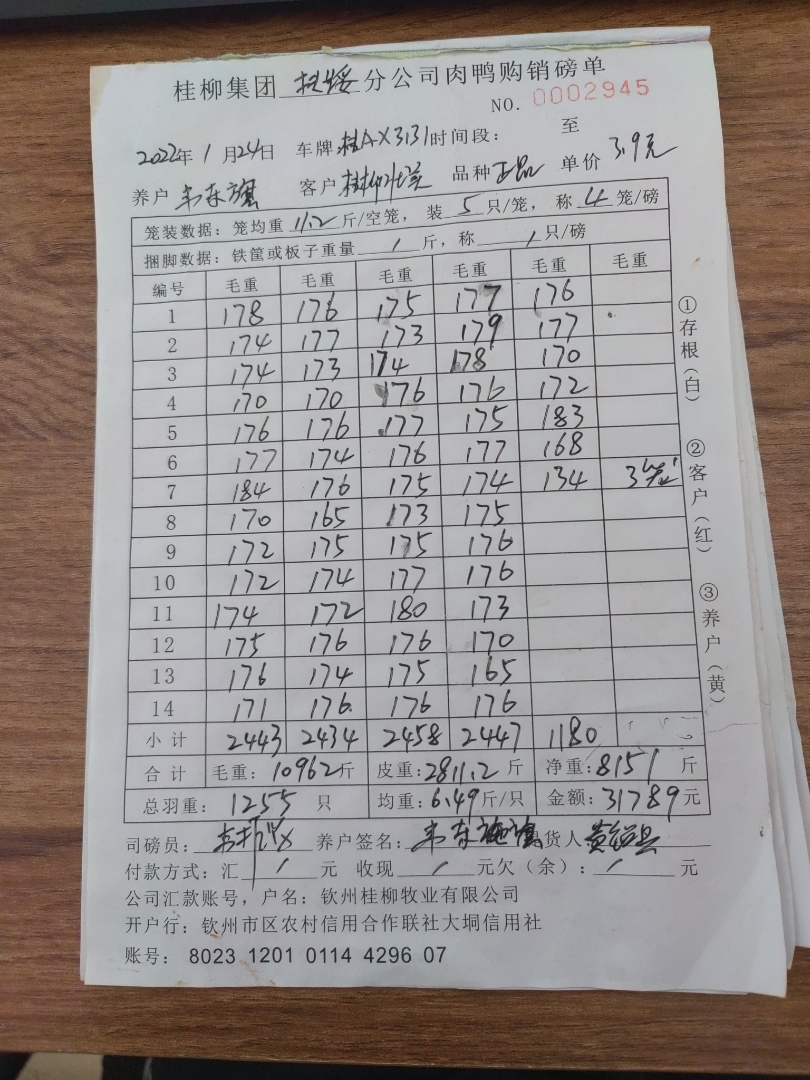 桂柳集团 扶绥 分公司肉鸭购销磅单
NO. 0002945
2022年 1 月 24日 车牌 桂AX3131 时间段： 至
养户 韦东旗 客户 品种 正品 单价 3.9元
笼装数据：笼均重 11.2 斤/空笼，装 5 只/笼，称 4 笼/磅
捆脚数据：铁筐或板子重量 / 斤，称 / 只/磅
编号 毛重 毛重 毛重 毛重 毛重 毛重
1 178 176 175 177 176
2 174 177 173 179 177
3 174 173 174 178 170
4 170 170 176 176 172
5 176 176 177 175 183
6 177 174 176 177 168
7 184 176 175 174 134 3笼
8 170 165 173 175
9 172 175 175 176
10 172 174 177 176
11 174 172 180 173
12 175 176 176 170
13 176 174 175 165
14 171 176 176 176
小计 2443 2434 2458 2447 1180
合计 毛重：10962斤 皮重：2811.2 斤 净重：8151 斤
总羽重： 1255 只 均重：6.49斤/只 金额：31789元
司磅员： 养户签名：韦东旗 货人
付款方式：汇 / 元 收现 / 元欠（余）： / 元
公司汇款账号，户名：钦州桂柳牧业有限公司
开户行：钦州市区农村信用合作联社大垌信用社
账号： 8023 1201 0114 4296 07
①存根（白） ②客户（红） ③养户（黄）